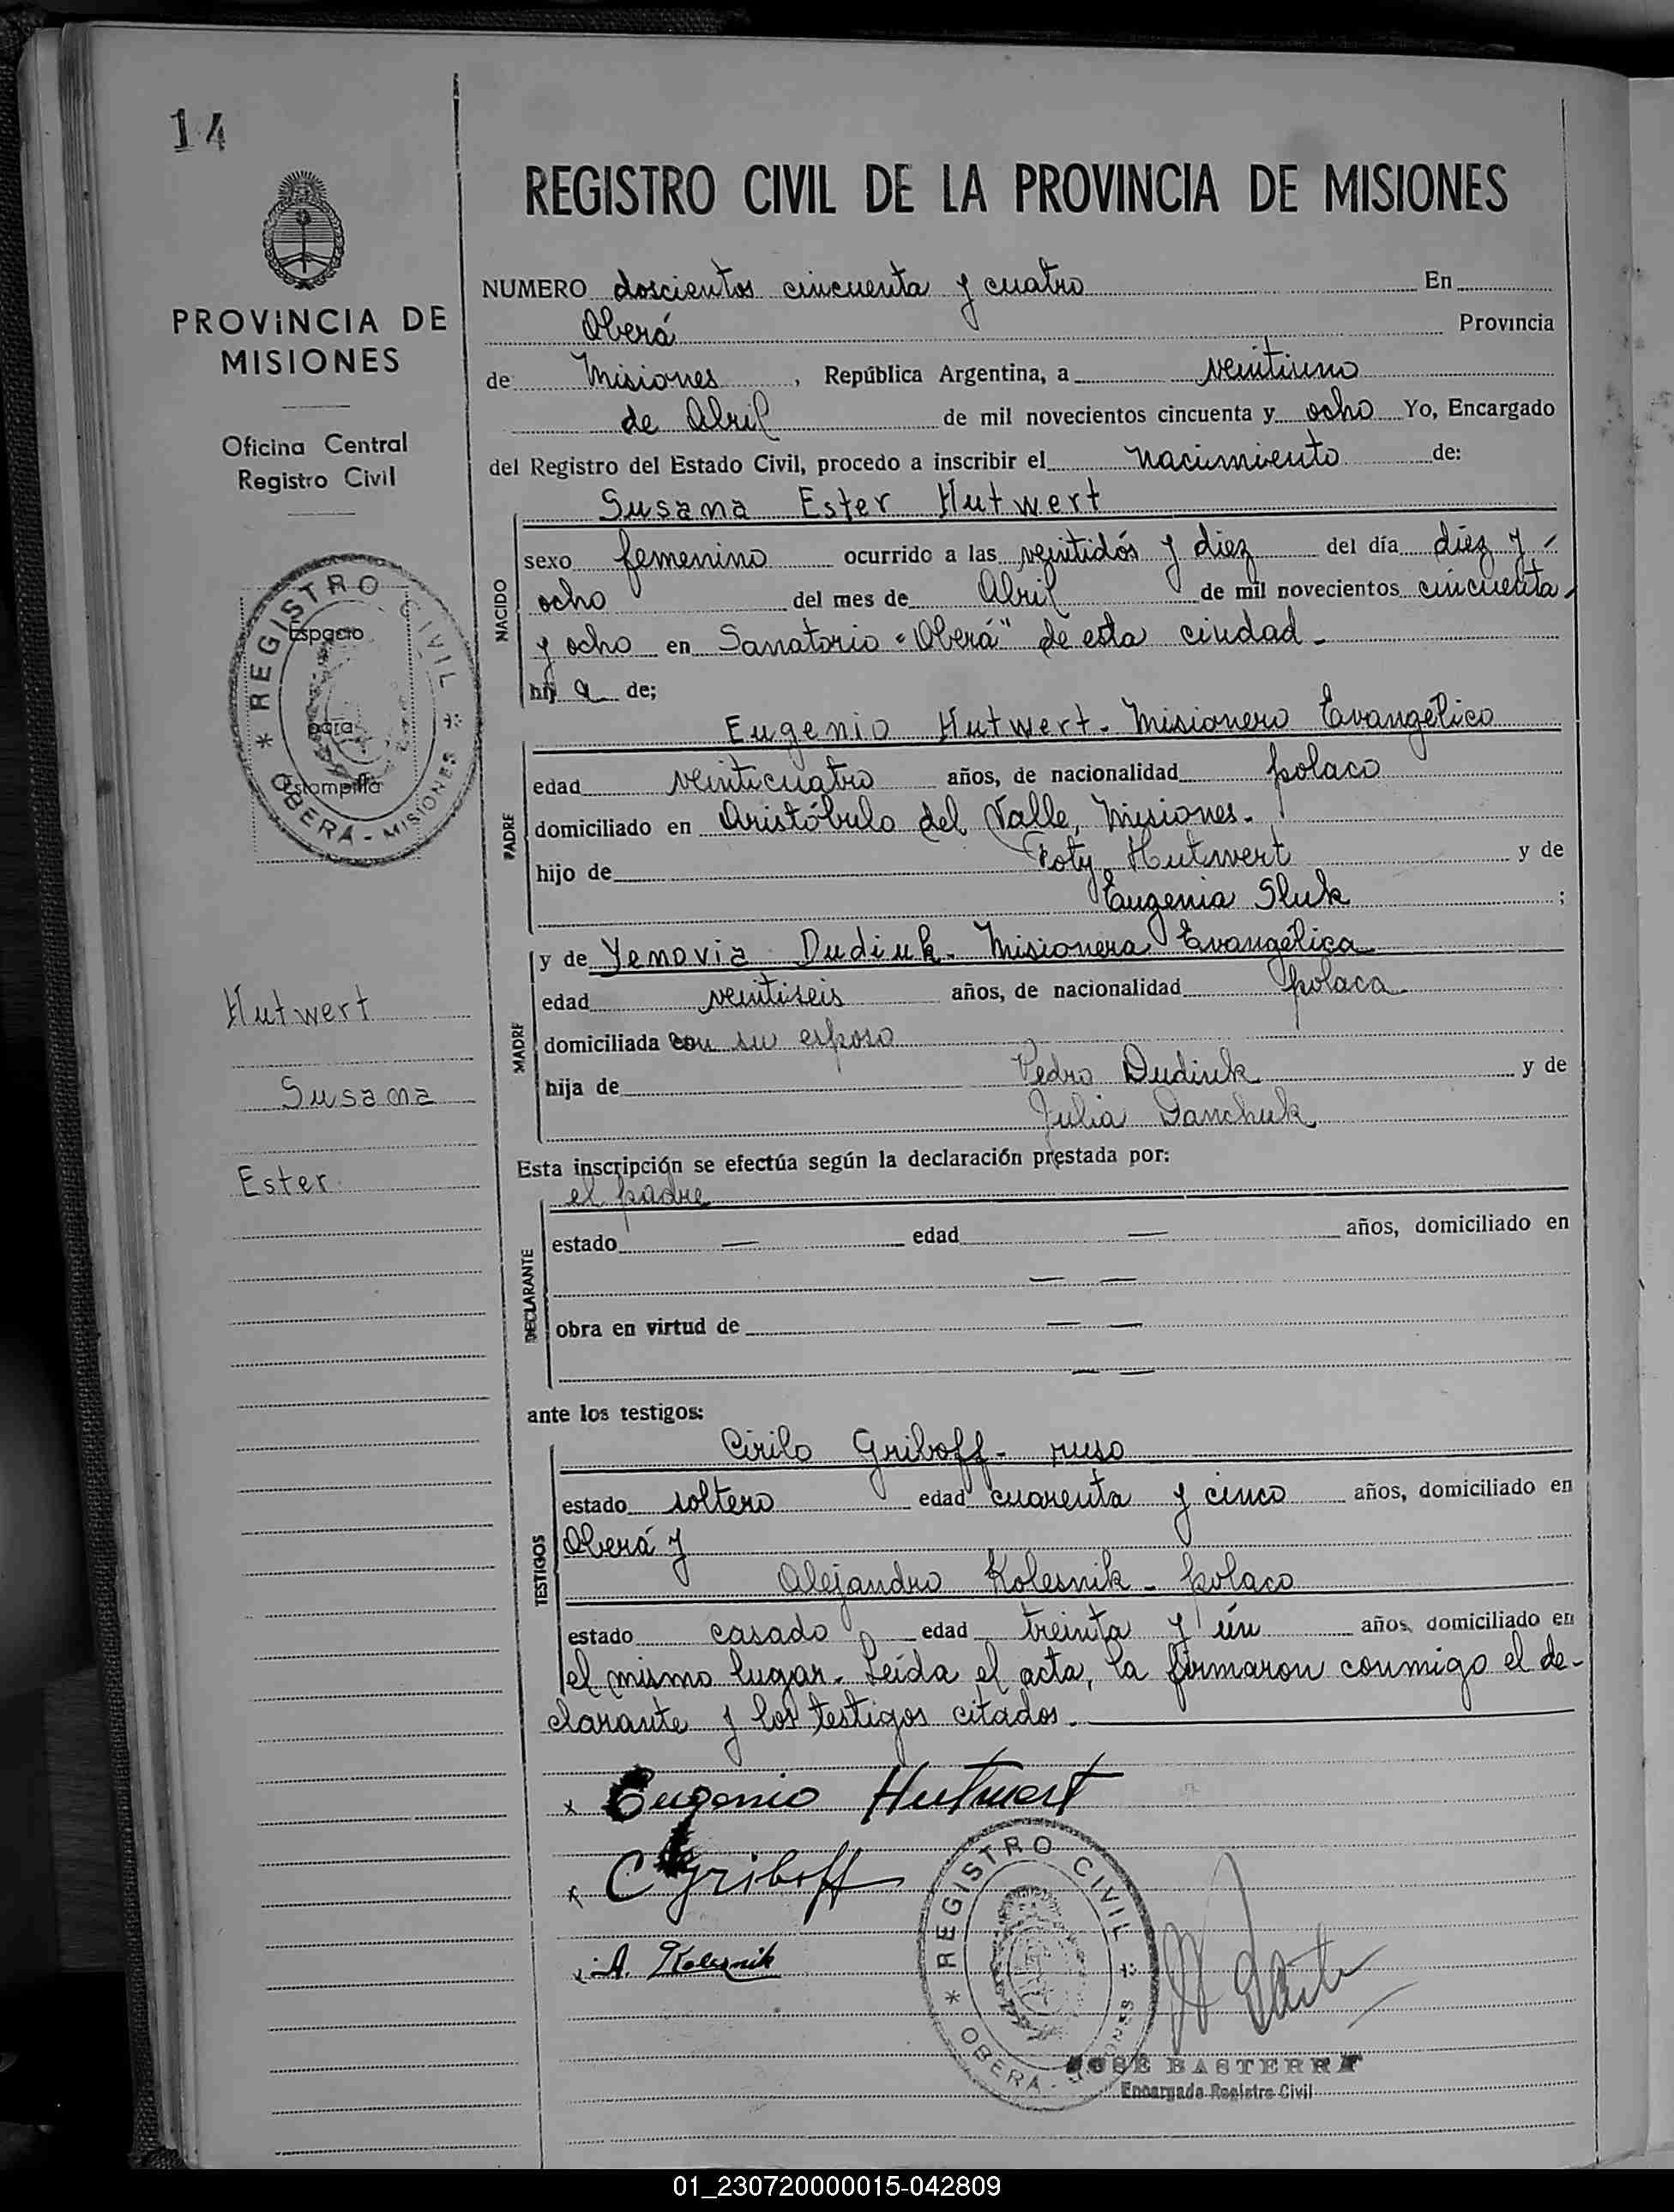 14
REGISTRO CIVIL DE LA PROVINCIA DE MISIONES
PROVINCIA DE
MISIONES
Oficina Central
Registro Civil
REGISTRO CIVIL
OBERÁ - MISIONES
Espacio
para
Estampilla
Hutwert
Susana
Ester
NUMERO doscientos cincuenta y cuatro En
Oberá Provincia
de Misiones, República Argentina, a veintiuno
de Abril de mil novecientos cincuenta y ocho Yo, Encargado
del Registro del Estado Civil, procedo a inscribir el nacimiento de:
Susana Ester Hutwert
NACIDO
sexo femenino ocurrido a las veintidós y diez del día diez y
ocho del mes de Abril de mil novecientos cincuenta
y ocho en Sanatorio "Oberá" de esta ciudad.
hij a de;
Eugenio Hutwert - Misionero Evangélico
PADRE
edad veinticuatro años, de nacionalidad polaco
domiciliado en Aristóbulo del Valle, Misiones.
hijo de Hutwert y de
Eugenia Sluk ;
y de Yenovia Dudiuk - Misionera Evangélica
MADRE
edad veintiseis años, de nacionalidad polaca
domiciliada con su esposo
hija de Pedro Dudiuk y de
Julia Danchuk
Esta inscripción se efectúa según la declaración prestada por:
el padre
DECLARANTE
estado — edad — años, domiciliado en
— —
obra en virtud de — —
— —
ante los testigos:
Cirilo Griboff - ruso
TESTIGOS
estado soltero edad cuarenta y cinco años, domiciliado en
Oberá y
Alejandro Kolesnik - polaco
estado casado edad treinta y ún años, domiciliado en
el mismo lugar. Leída el acta, la firmaron conmigo el de-
clarante y los testigos citados.
x Eugenio Hutwert
x C Griboff
x A. Kolesnik
REGISTRO CIVIL
OBERÁ - MISIONES
JOSE BASTERRA
Encargado Registro Civil
01_230720000015-042809